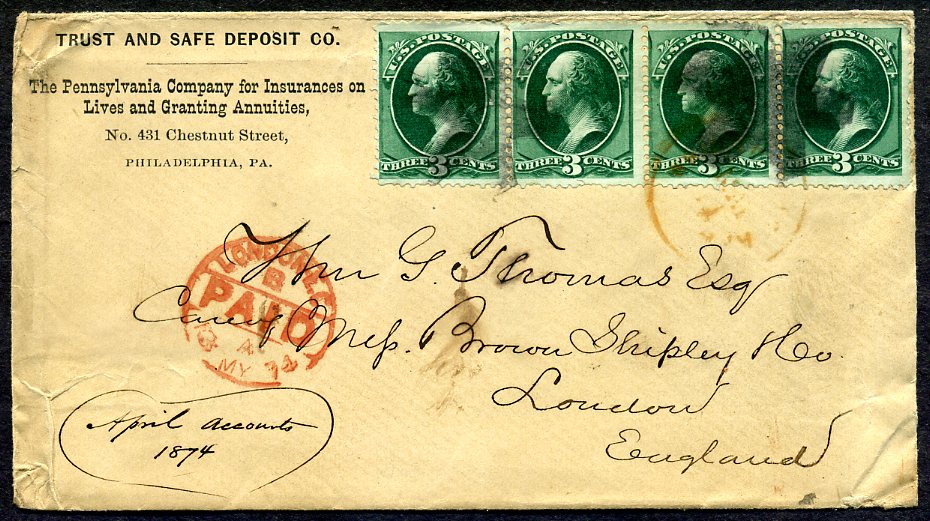 TRUST AND SAFE DEPOSIT CO.
The Pennsylvania Company for Insurances on
Lives and Granting Annuities,
No. 431 Chestnut Street,
PHILADELPHIA, PA.
U.S. POSTAGE
THREE 3 CENTS
U.S. POSTAGE
THREE 3 CENTS
U.S. POSTAGE
THREE 3 CENTS
U.S. POSTAGE
THREE 3 CENTS
Wm G. Thomas Esq
Care of Mess. Brown Shipley & Co.
London
England
LONDON E.C
B
PAID
MY 74
April accounts
1874